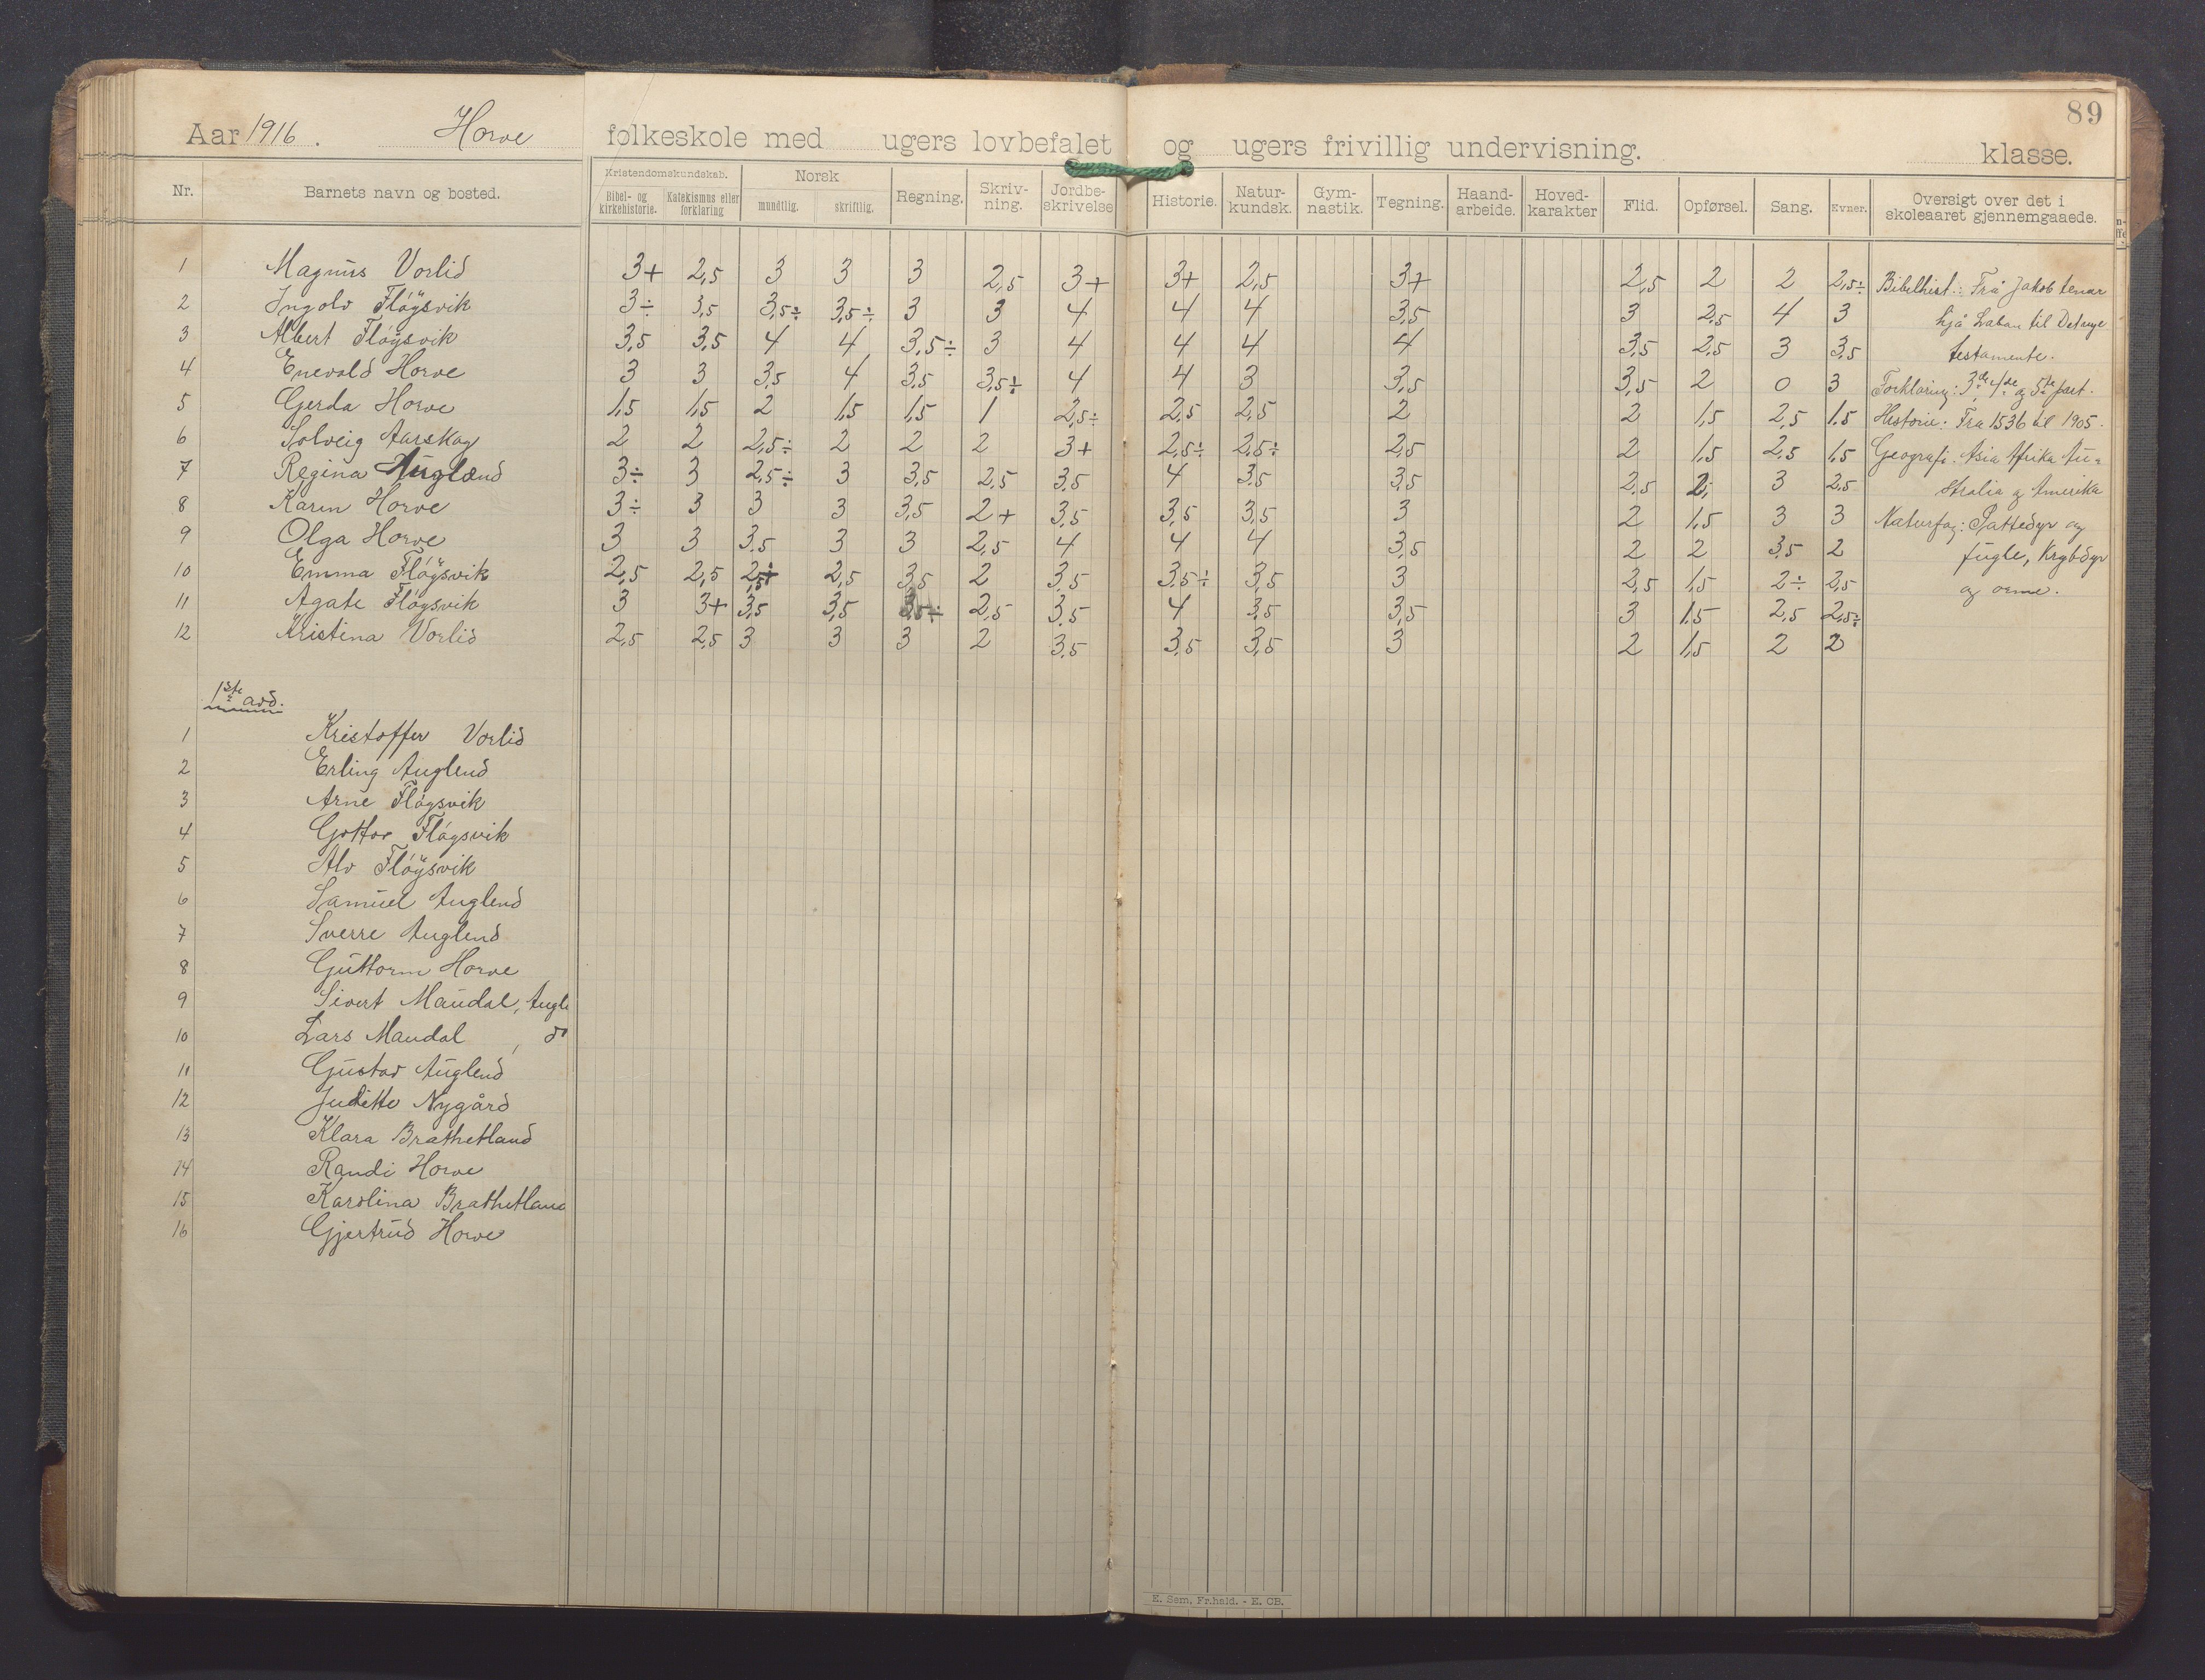 89
Aar 1916. Horve folkeskole med ugers lovbefalet og ugers frivillig undervisning. klasse.
Nr. Barnets navn og bosted. Kristendomskundskab. Bibel- og kirkehistorie. Katekismus eller forklaring Norsk mundtlig. skriftlig. Regning. Skriv-ning. Jordbe-skrivelse Historie. Natur-kundsk. Gym-nastik. Tegning. Haand-arbeide. Hoved-karakter Flid. Opførsel. Sang. Evner. Oversigt over det i skoleaaret gjennemgaaede.
1 Magnus Vorlid 3+ 2,5 3 3 3 2,5 3+ 3+ 2,5 3+ 2,5 2 2 2,5÷ Bibelhist.: Frå Jakob tenar
2 Ingolv Fløysvik 3÷ 3,5 3,5÷ 3,5÷ 3 3 4 4 4 3,5 3 2,5 4 3 hjå Laban til Det nye
3 Albert Fløysvik 3,5 3,5 4 4 3,5÷ 3 4 4 4 4 3,5 2,5 3 3,5 testamente.
4 Enevald Horve 3 3 3,5 4 3,5 3,5÷ 4 4 3 3,5 3,5 2 0 3 Forklaring: 3de 4de og 5te part.
5 Gerda Horve 1,5 1,5 2 1,5 1,5 1 2,5÷ 2,5 2,5 2 2 1,5 2,5 1,5 Historie: Fra 1536 til 1905.
6 Solveig Aarskog 2 2 2,5÷ 2 2 2 3+ 2,5÷ 2,5÷ 2,5 2 1,5 2,5 1,5 Geografi. Asia Afrika Au=
7 Regina Auglænd 3÷ 3 2,5÷ 3 3,5 2,5 3,5 4 3,5 3,5 2,5 2 3 2,5 stralia og Amerika
8 Karen Horve 3÷ 3 3 3 3,5 2+ 3,5 3,5 3,5 3 2 1,5 3 3 Naturfag: Pattedyr og
9 Olga Horve 3 3 3,5 3 3 2,5 4 4 4 3,5 2 2 3,5 2 fugle, Krybdyr
10 Emma Fløysvik 2,5 2,5 2,5÷ 2,5 3,5 2 3,5 3,5÷ 3,5 3 2,5 1,5 2÷ 2,5 og orme.
11 Agate Fløysvik 3 3+ 3,5 3,5 3,5÷ 2,5 3,5 4 3,5 3,5 3 1,5 2,5 2,5÷
12 Kristina Vorlid 2,5 2,5 3 3 3 2 3,5 3,5 3,5 3 2 1,5 2 2
1ste avd.
1 Kristoffer Vorlid
2 Erling Auglend
3 Arne Fløysvik
4 Gottor Fløysvik
5 Alv Fløysvik
6 Samuel Auglend
7 Sverre Auglend
8 Guttorm Horve
9 Sivert Maudal, Augle
10 Lars Maudal, do
11 Gustav Auglend
12 Juditte Nygård
13 Klara Brathetland
14 Randi Horve
15 Karolina Brathetland
16 Gjertrud Horve
E. Sem, Fr.hald. - E. CB.